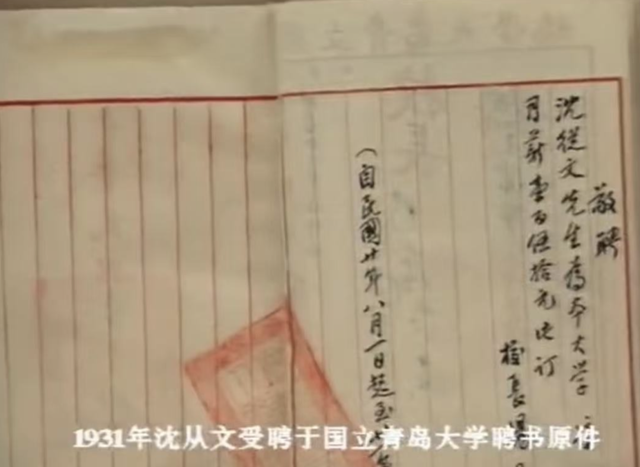 敬聘
沈從文先生為本大学
月薪壹百伍拾元此訂
校長
（自民國廿年八月一日起至
1931年沈从文受聘于国立青岛大学聘书原件